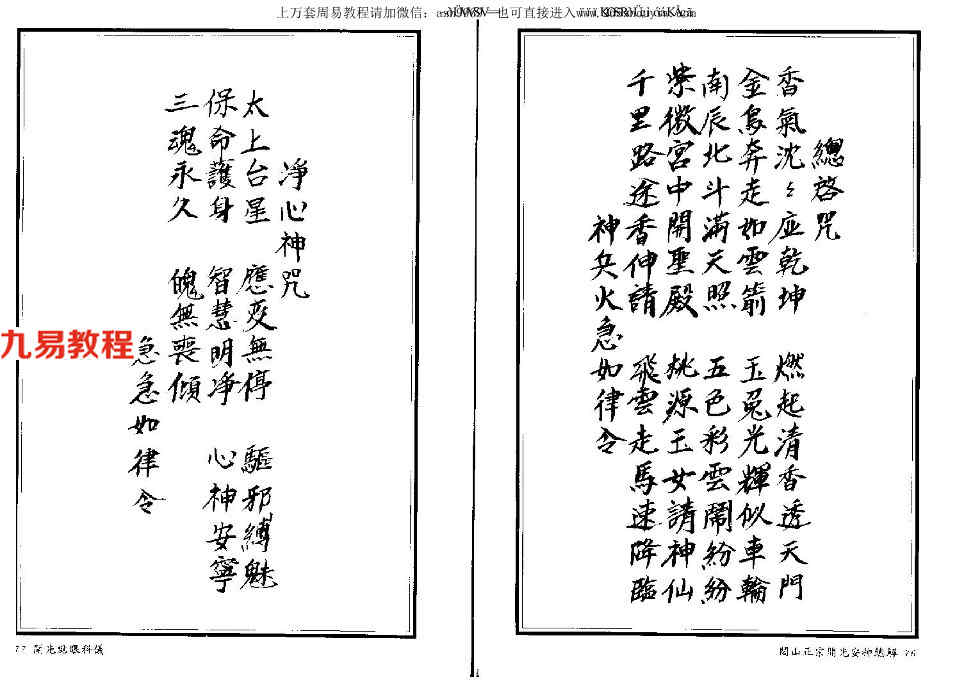 上万套周易教程请加微信：
也可直接进入
總啓咒
香氣沈沈应乾坤 燃起清香透天門
金烏奔走如雲箭 玉兔光輝似車輪
南辰北斗滿天照 五色彩雲鬧紛紛
紫微宮中開聖殿 桃源玉女請神仙
千里路途香伸請 飛雲走馬速降臨
神兵火急如律令
閭山正宗開光安神總解 76
淨心神咒
太上台星 應变無停 驅邪縛魅
保命護身 智慧明净 心神安寧
三魂永久 魄無喪傾
急急如律令
九易教程
77 開光點眼科儀